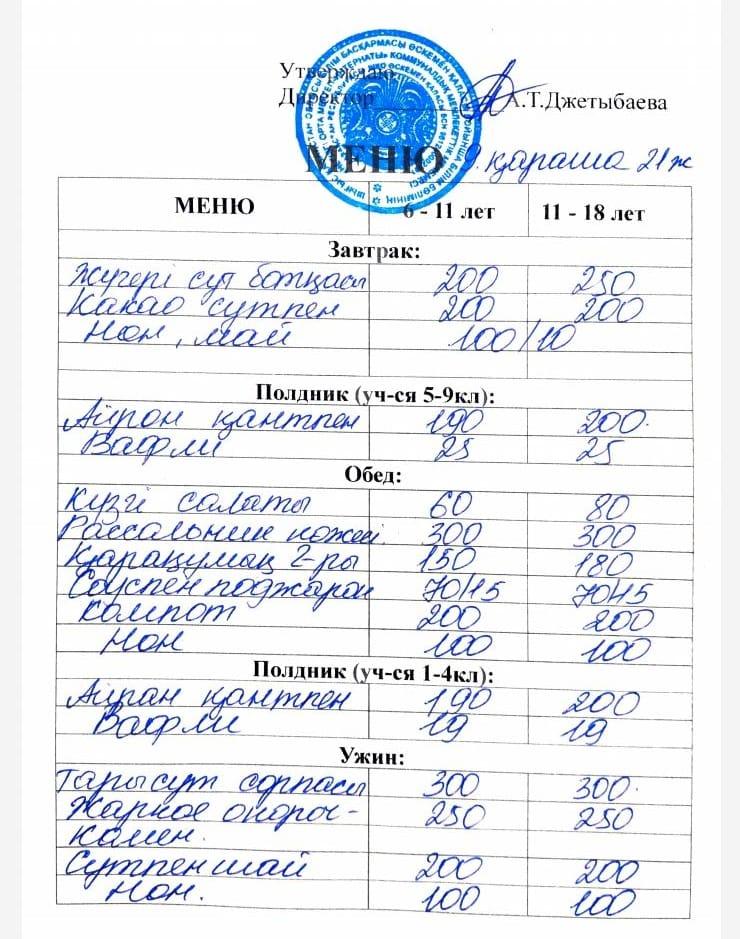 Утверждаю
Директор А.Т.Джетыбаева
МЕНЮ 9. қараша 21 ж
МЕНЮ 6 - 11 лет 11 - 18 лет
Завтрак:
Жүгері сүт ботқасы 200 250
Какао сүтпен 200 200
Нон, май 100/10
Полдник (уч-ся 5-9кл):
Айрон қантпен 190 200.
Вафли 25 25
Обед:
Күзгі салаты 60 80
Рассольник көжесі. 300 300
Қарақұмық 2-ры 150 180
Соуспен поджарои 70/15 70/15
Компот 200 200
Нон 100 100
Полдник (уч-ся 1-4кл):
Айран қантпен 190 200
Вафли 19 19
Ужин:
Тары сүт сорпасы 300 300.
Жаркое
250 250
Сүтпен шай 200 200
Нон. 100 100